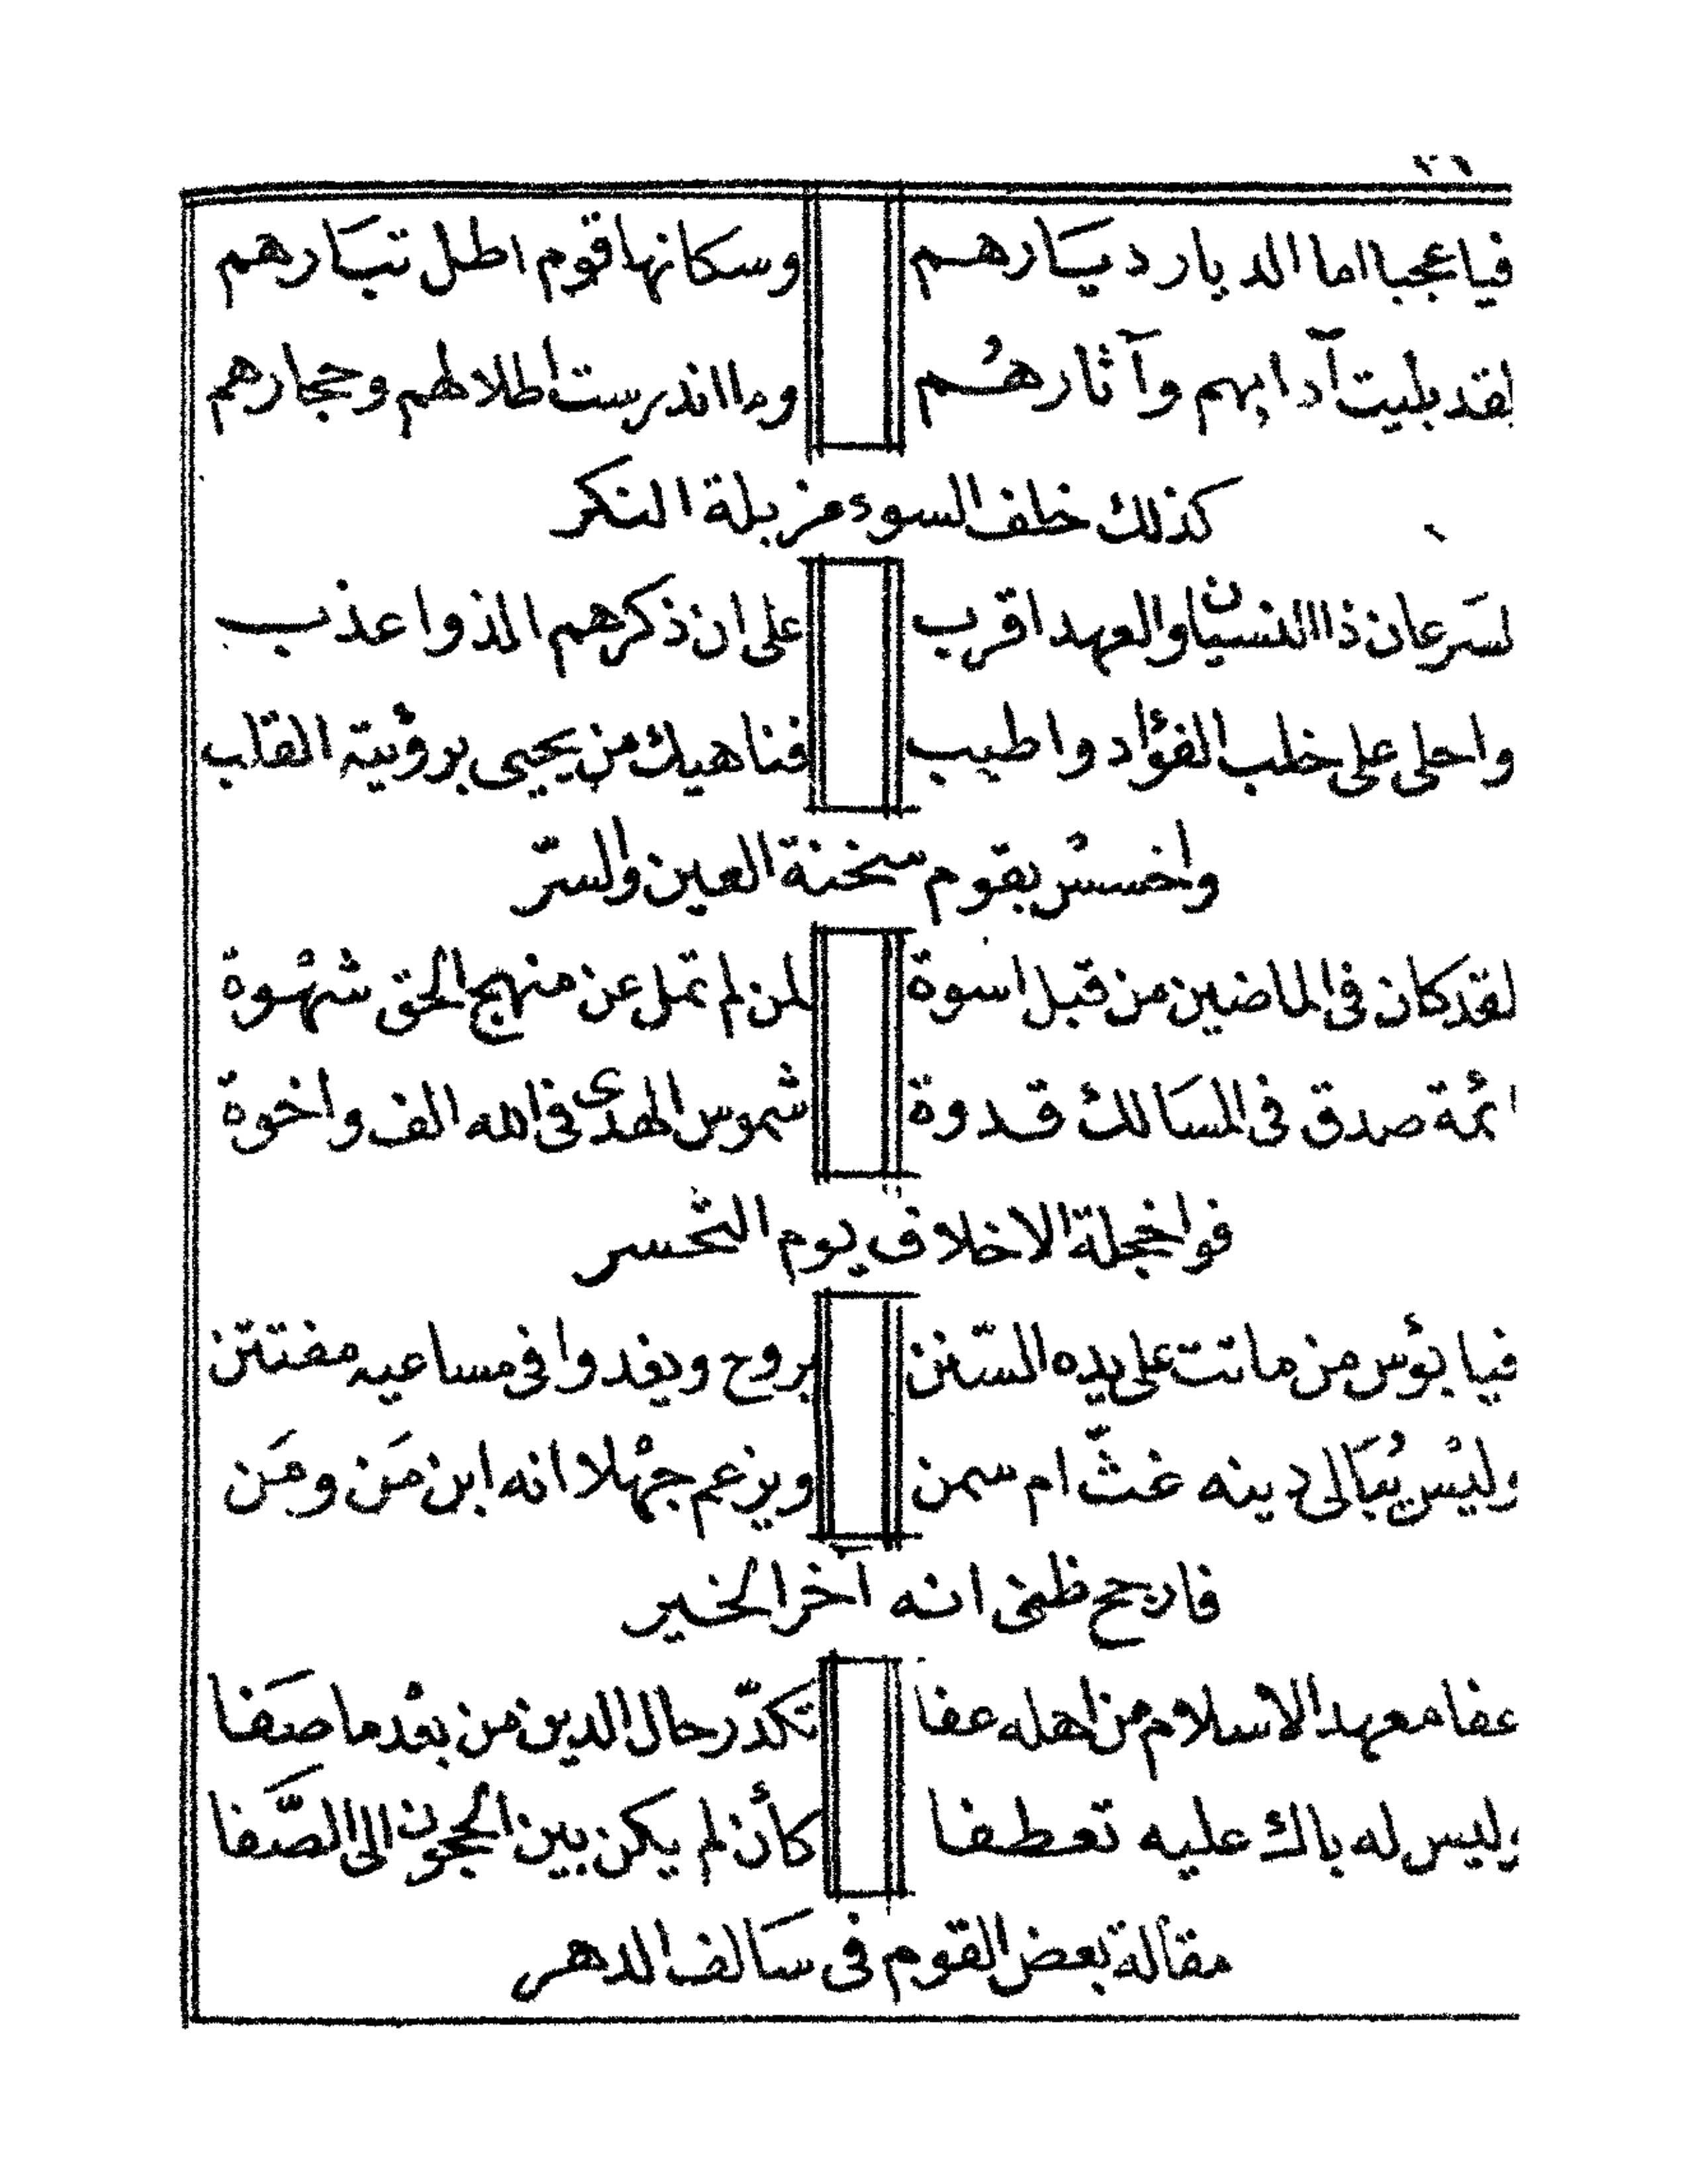 فياعجبا اما الديار ديَارهم وسكانها قوم اطل تبَارهم
لقد بليت آدابهم وآثارهُم وما اندرست اطلالهم وحجارهم
كذلك خلف السوء مزبلة النكر
لسَرعان ذا النسيان والعهد اقرب على ان ذكرهم الذ واعذب
واحلى على خلب الفؤاد واطيب فناهيك من يحيى برؤيته القلب
واخسسْ بقوم سخنة العين والسرّ
لقد كان فى الماضين من قبل اسوة لمن لم تمل عن منهج الحق شهْوة
ائمة صدق فى المسَالك قدوة شموس الهدى فى الله الف واخوة
فواخجلة الاخلاف يوم التحسر
فيا بؤس من ماتت على يده السّنن يروح ويغدوا فى مساعيه مفتتن
وليْس يُبَالى دينه غثّ ام سمن ويزعم جهْلا انه ابن مَن ومَن
فارجح ظنى انه آخر الخير
عفا معهد الاسلام من اهله عفا تكدّر حال الدين من بعْد ما صَفا
وليس له باك عليه تعطفا كأن لم يكن بين الحجون الى الصَّفا
مقالة بعض القوم فى سَالف الدهر